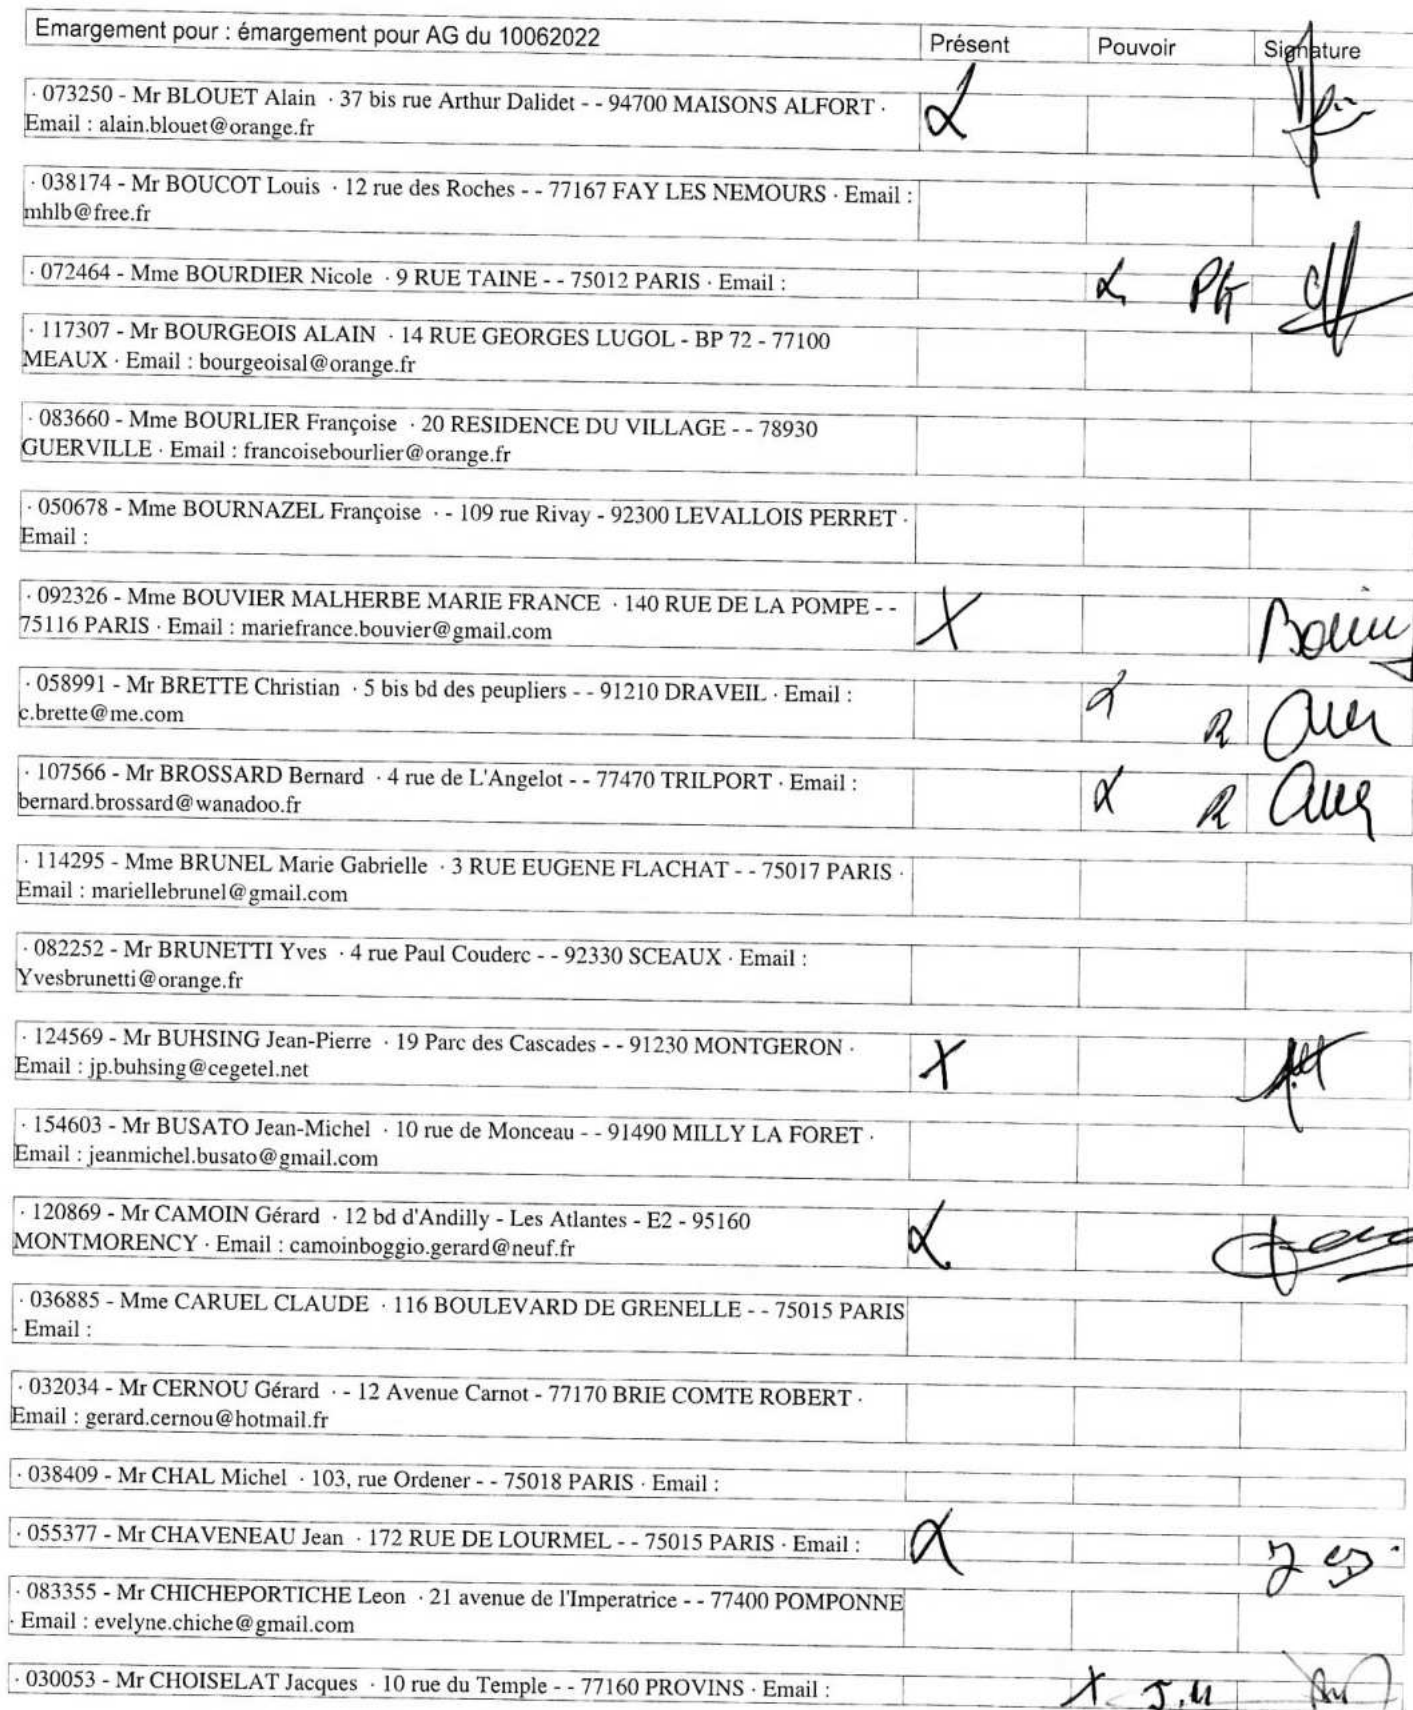 Emargement pour : émargement pour AG du 10062022 Présent Pouvoir Signature
· 073250 - Mr BLOUET Alain · 37 bis rue Arthur Dalidet - - 94700 MAISONS ALFORT ·
Email : alain.blouet@orange.fr
· 038174 - Mr BOUCOT Louis · 12 rue des Roches - - 77167 FAY LES NEMOURS · Email :
mhlb@free.fr
· 072464 - Mme BOURDIER Nicole · 9 RUE TAINE - - 75012 PARIS · Email :
· 117307 - Mr BOURGEOIS ALAIN · 14 RUE GEORGES LUGOL - BP 72 - 77100
MEAUX · Email : bourgeoisal@orange.fr
· 083660 - Mme BOURLIER Françoise · 20 RESIDENCE DU VILLAGE - - 78930
GUERVILLE · Email : francoisebourlier@orange.fr
· 050678 - Mme BOURNAZEL Françoise · - 109 rue Rivay - 92300 LEVALLOIS PERRET ·
Email :
· 092326 - Mme BOUVIER MALHERBE MARIE FRANCE · 140 RUE DE LA POMPE - - X
75116 PARIS · Email : mariefrance.bouvier@gmail.com
· 058991 - Mr BRETTE Christian · 5 bis bd des peupliers - - 91210 DRAVEIL · Email :
c.brette@me.com
· 107566 - Mr BROSSARD Bernard · 4 rue de L'Angelot - - 77470 TRILPORT · Email :
bernard.brossard@wanadoo.fr
· 114295 - Mme BRUNEL Marie Gabrielle · 3 RUE EUGENE FLACHAT - - 75017 PARIS ·
Email : mariellebrunel@gmail.com
· 082252 - Mr BRUNETTI Yves · 4 rue Paul Couderc - - 92330 SCEAUX · Email :
Yvesbrunetti@orange.fr
· 124569 - Mr BUHSING Jean-Pierre · 19 Parc des Cascades - - 91230 MONTGERON · X
Email : jp.buhsing@cegetel.net
· 154603 - Mr BUSATO Jean-Michel · 10 rue de Monceau - - 91490 MILLY LA FORET ·
Email : jeanmichel.busato@gmail.com
· 120869 - Mr CAMOIN Gérard · 12 bd d'Andilly - Les Atlantes - E2 - 95160
MONTMORENCY · Email : camoinboggio.gerard@neuf.fr
· 036885 - Mme CARUEL CLAUDE · 116 BOULEVARD DE GRENELLE - - 75015 PARIS
· Email :
· 032034 - Mr CERNOU Gérard · - 12 Avenue Carnot - 77170 BRIE COMTE ROBERT ·
Email : gerard.cernou@hotmail.fr
· 038409 - Mr CHAL Michel · 103, rue Ordener - - 75018 PARIS · Email :
· 055377 - Mr CHAVENEAU Jean · 172 RUE DE LOURMEL - - 75015 PARIS · Email :
· 083355 - Mr CHICHEPORTICHE Leon · 21 avenue de l'Imperatrice - - 77400 POMPONNE
· Email : evelyne.chiche@gmail.com
· 030053 - Mr CHOISELAT Jacques · 10 rue du Temple - - 77160 PROVINS · Email : X J.M